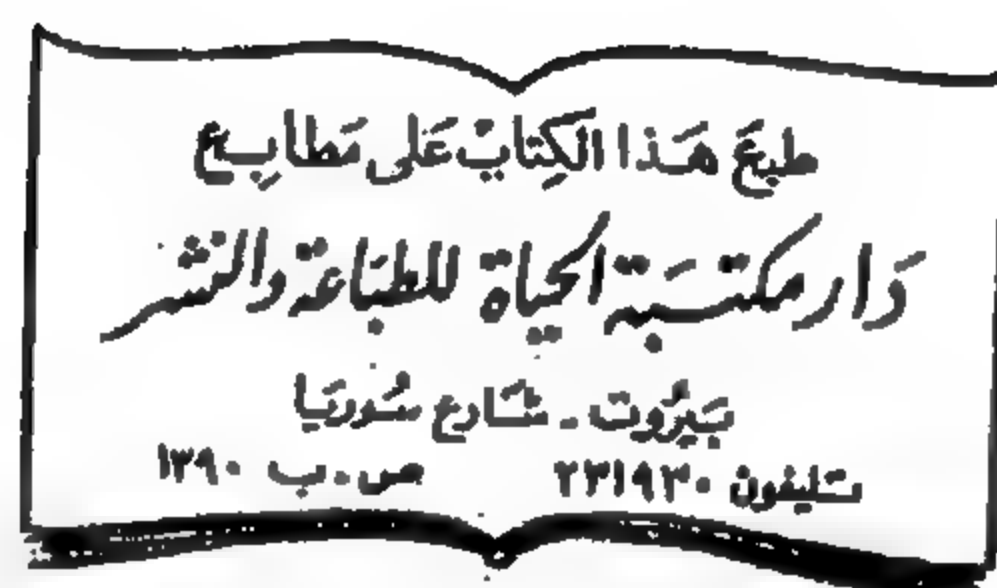 طبعَ هَذا الكِتابْ عَلى مَطابِع
دَار مكتَبَة الحيَاة للطبَاعة والنشر
بَيرُوت - شَارع سُوريَا
تليفون ٢٣١٩٣٠ ص.ب ١٣٩٠